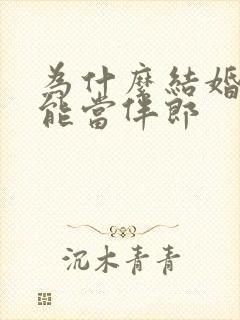 為什麼結婚
能當伴郎
沉木青青